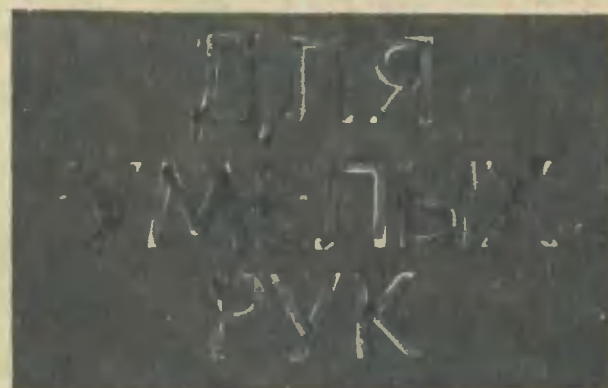 ДЛЯ
УМЕЛЫХ
РУК